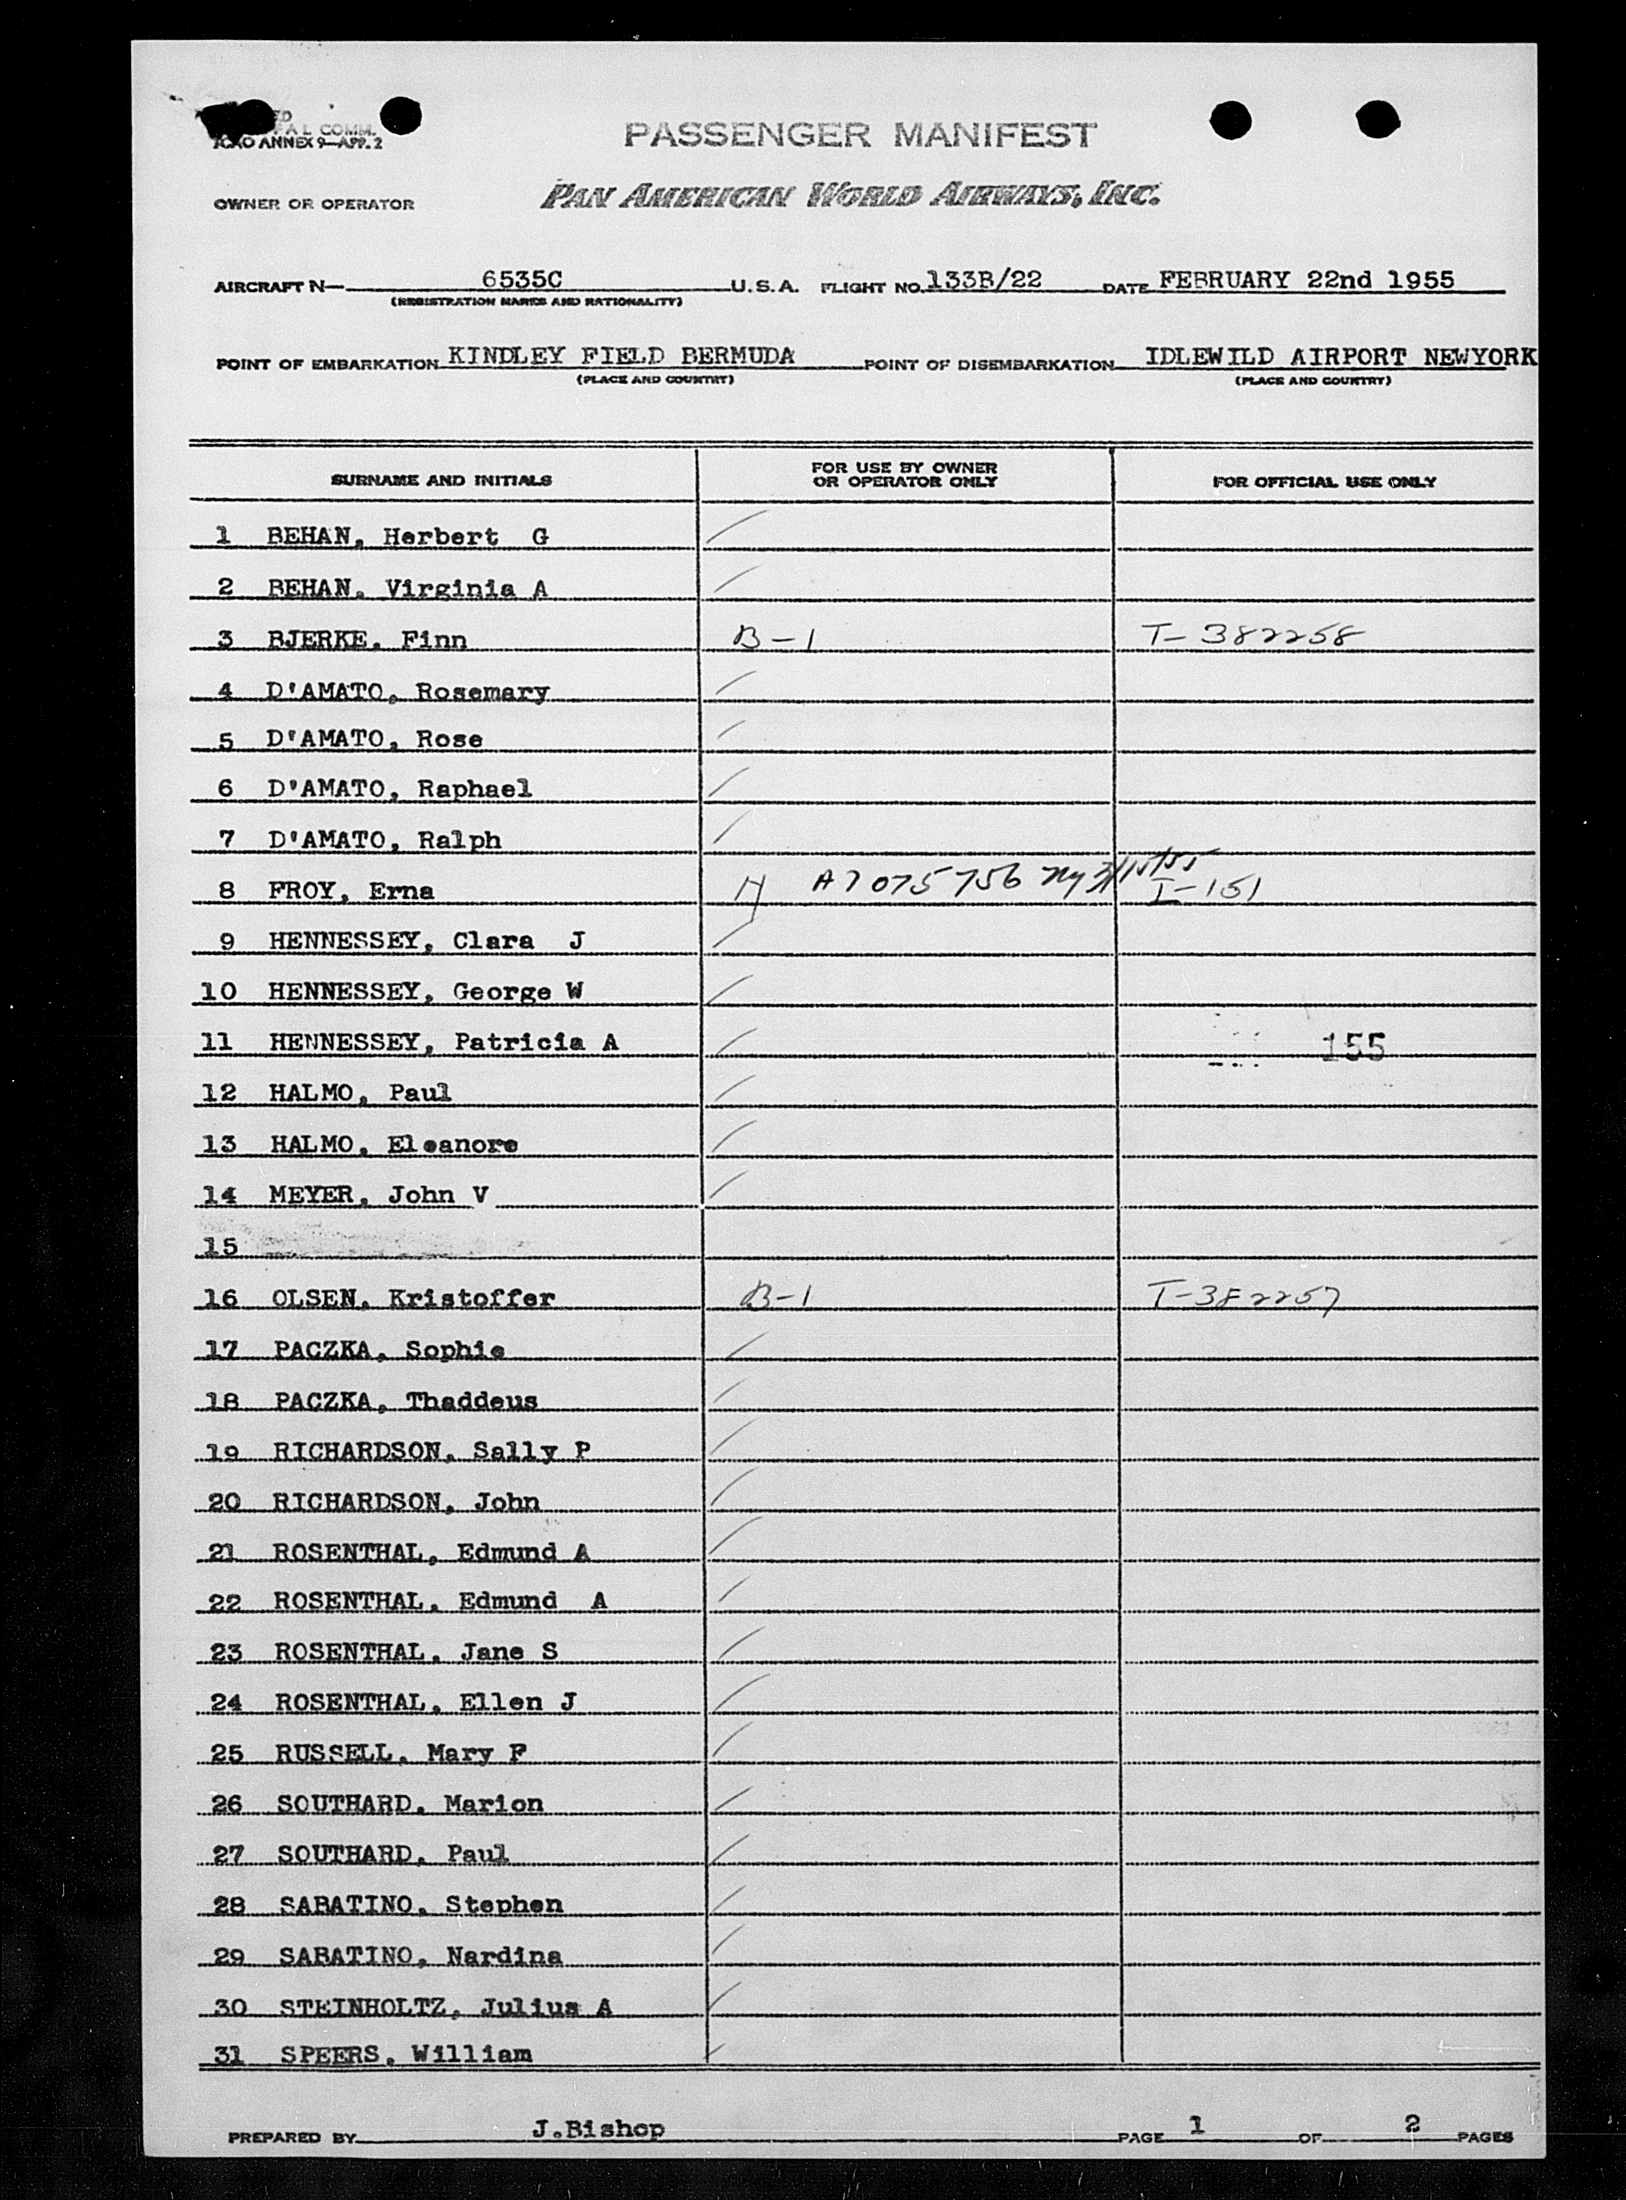 FAL COMM.
ICAO ANNEX 9—APP. 2
PASSENGER MANIFEST
OWNER OR OPERATOR PAN AMERICAN WORLD AIRWAYS, INC.
AIRCRAFT N— 6535C U.S.A. FLIGHT NO. 133B/22 DATE FEBRUARY 22nd 1955
(REGISTRATION MARKS AND NATIONALITY)
POINT OF EMBARKATION KINDLEY FIELD BERMUDA POINT OF DISEMBARKATION IDLEWILD AIRPORT NEWYORK
(PLACE AND COUNTRY) (PLACE AND COUNTRY)
SURNAME AND INITIALS FOR USE BY OWNER OR OPERATOR ONLY FOR OFFICIAL USE ONLY
1 BEHAN, Herbert G
2 BEHAN, Virginia A
3 BJERKE, Finn B-1 T-382258
4 D'AMATO, Rosemary
5 D'AMATO, Rose
6 D'AMATO, Raphael
7 D'AMATO, Ralph
8 FROY, Erna A7 075 756 Ny 3/15/55 I-151
9 HENNESSEY, Clara J
10 HENNESSEY, George W
11 HENNESSEY, Patricia A 155
12 HALMO, Paul
13 HALMO, Eleanore
14 MEYER, John V
15
16 OLSEN, Kristoffer B-1 T-382257
17 PACZKA, Sophie
18 PACZKA, Thaddeus
19 RICHARDSON, Sally P
20 RICHARDSON, John
21 ROSENTHAL, Edmund A
22 ROSENTHAL, Edmund A
23 ROSENTHAL, Jane S
24 ROSENTHAL, Ellen J
25 RUSSELL, Mary F
26 SOUTHARD, Marion
27 SOUTHARD, Paul
28 SABATINO, Stephen
29 SABATINO, Nardina
30 STEINHOLTZ, Julius A
31 SPEERS, William
PREPARED BY J.Bishop PAGE 1 OF 2 PAGES